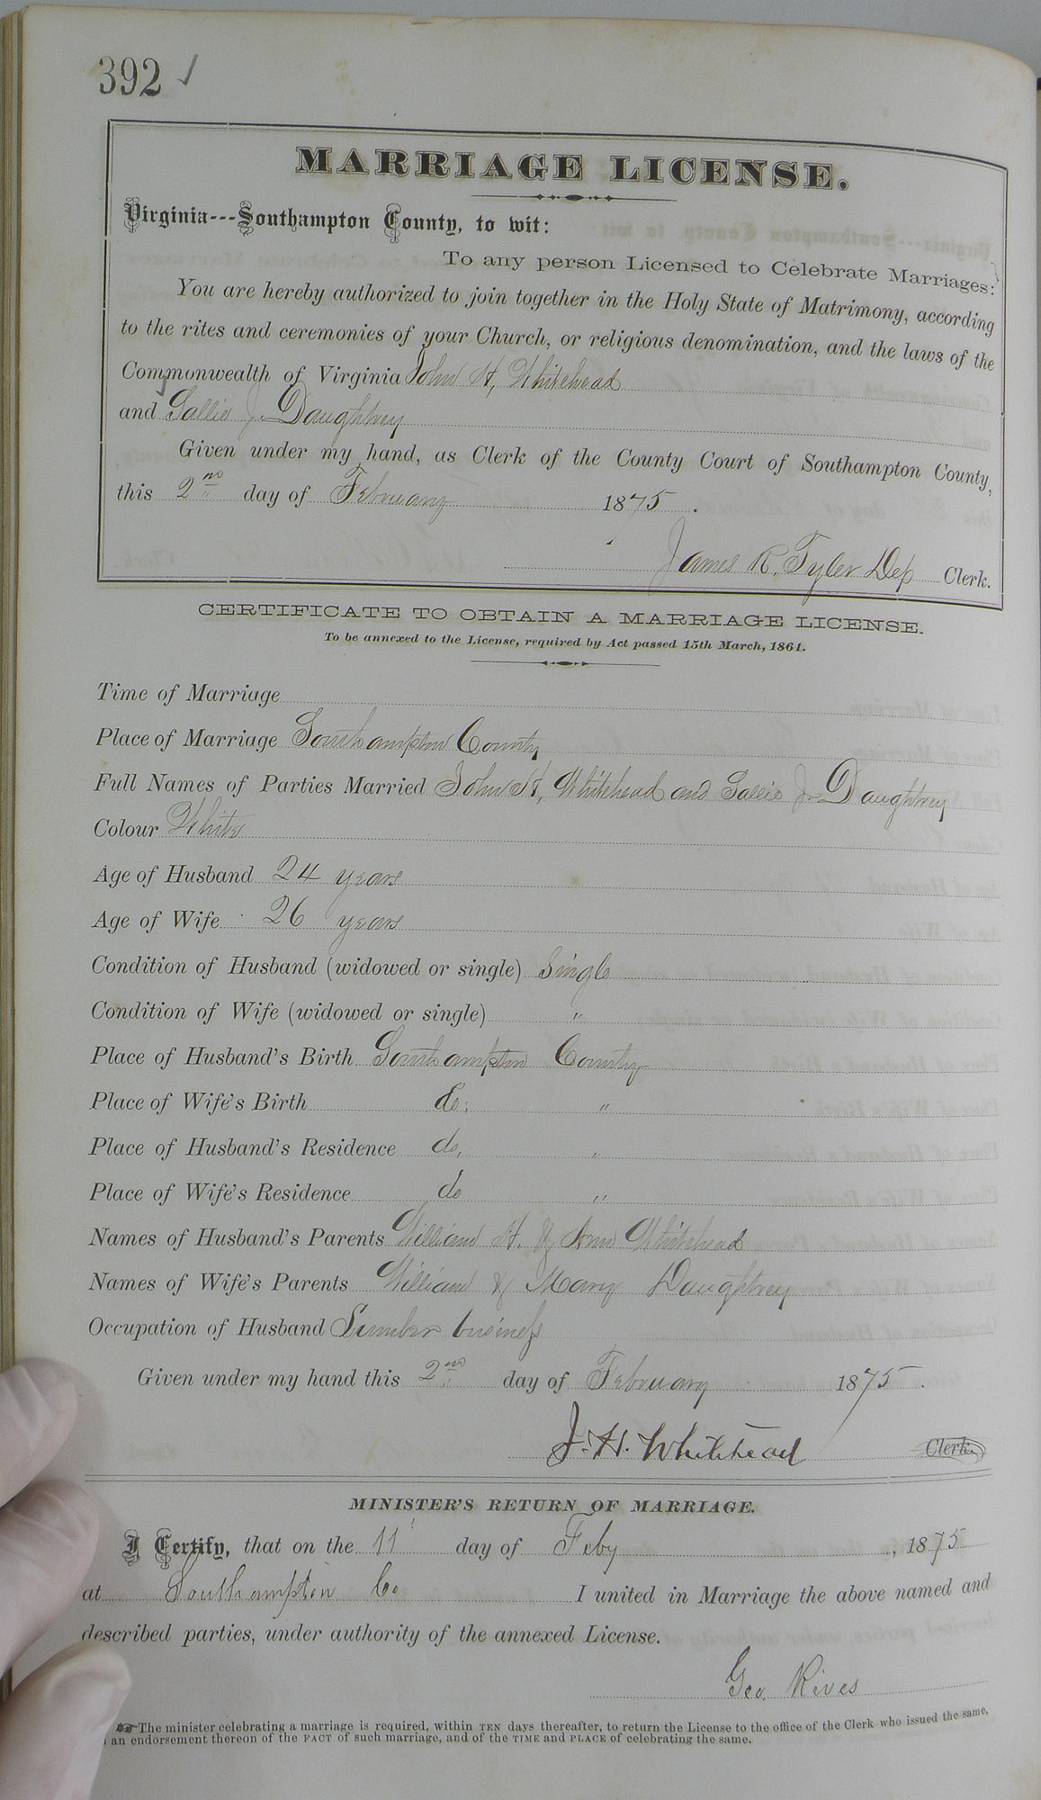 392 ✓
MARRIAGE LICENSE.
Virginia---Southampton County, to wit:
To any person Licensed to Celebrate Marriages:
You are hereby authorized to join together in the Holy State of Matrimony, according
to the rites and ceremonies of your Church, or religious denomination, and the laws of the
Commonwealth of Virginia John H. Whitehead
and Sallie J. Daughtrey
Given under my hand, as Clerk of the County Court of Southampton County,
this 2nd day of February 1875.
James R. Tyler Dep Clerk.
CERTIFICATE TO OBTAIN A MARRIAGE LICENSE.
To be annexed to the License, required by Act passed 15th March, 1861.
Time of Marriage
Place of Marriage Southampton County
Full Names of Parties Married John H. Whitehead and Sallie J. Daughtrey
Colour White
Age of Husband 24 years
Age of Wife 26 years
Condition of Husband (widowed or single) Single
Condition of Wife (widowed or single) "
Place of Husband's Birth Southampton County
Place of Wife's Birth do. "
Place of Husband's Residence do. "
Place of Wife's Residence do "
Names of Husband's Parents William H. & Ann Whitehead
Names of Wife's Parents William & Mary Daughtrey
Occupation of Husband Lumber business
Given under my hand this 2nd day of February 1875.
J. H. Whitehead Clerk.
MINISTER'S RETURN OF MARRIAGE.
I Certify, that on the 11 day of Feby, 1875
at Southampton Co I united in Marriage the above named and
described parties, under authority of the annexed License.
Geo. Rives
☞ The minister celebrating a marriage is required, within TEN days thereafter, to return the License to the office of the Clerk who issued the same,
an endorsement thereon of the FACT of such marriage, and of the TIME and PLACE of celebrating the same.